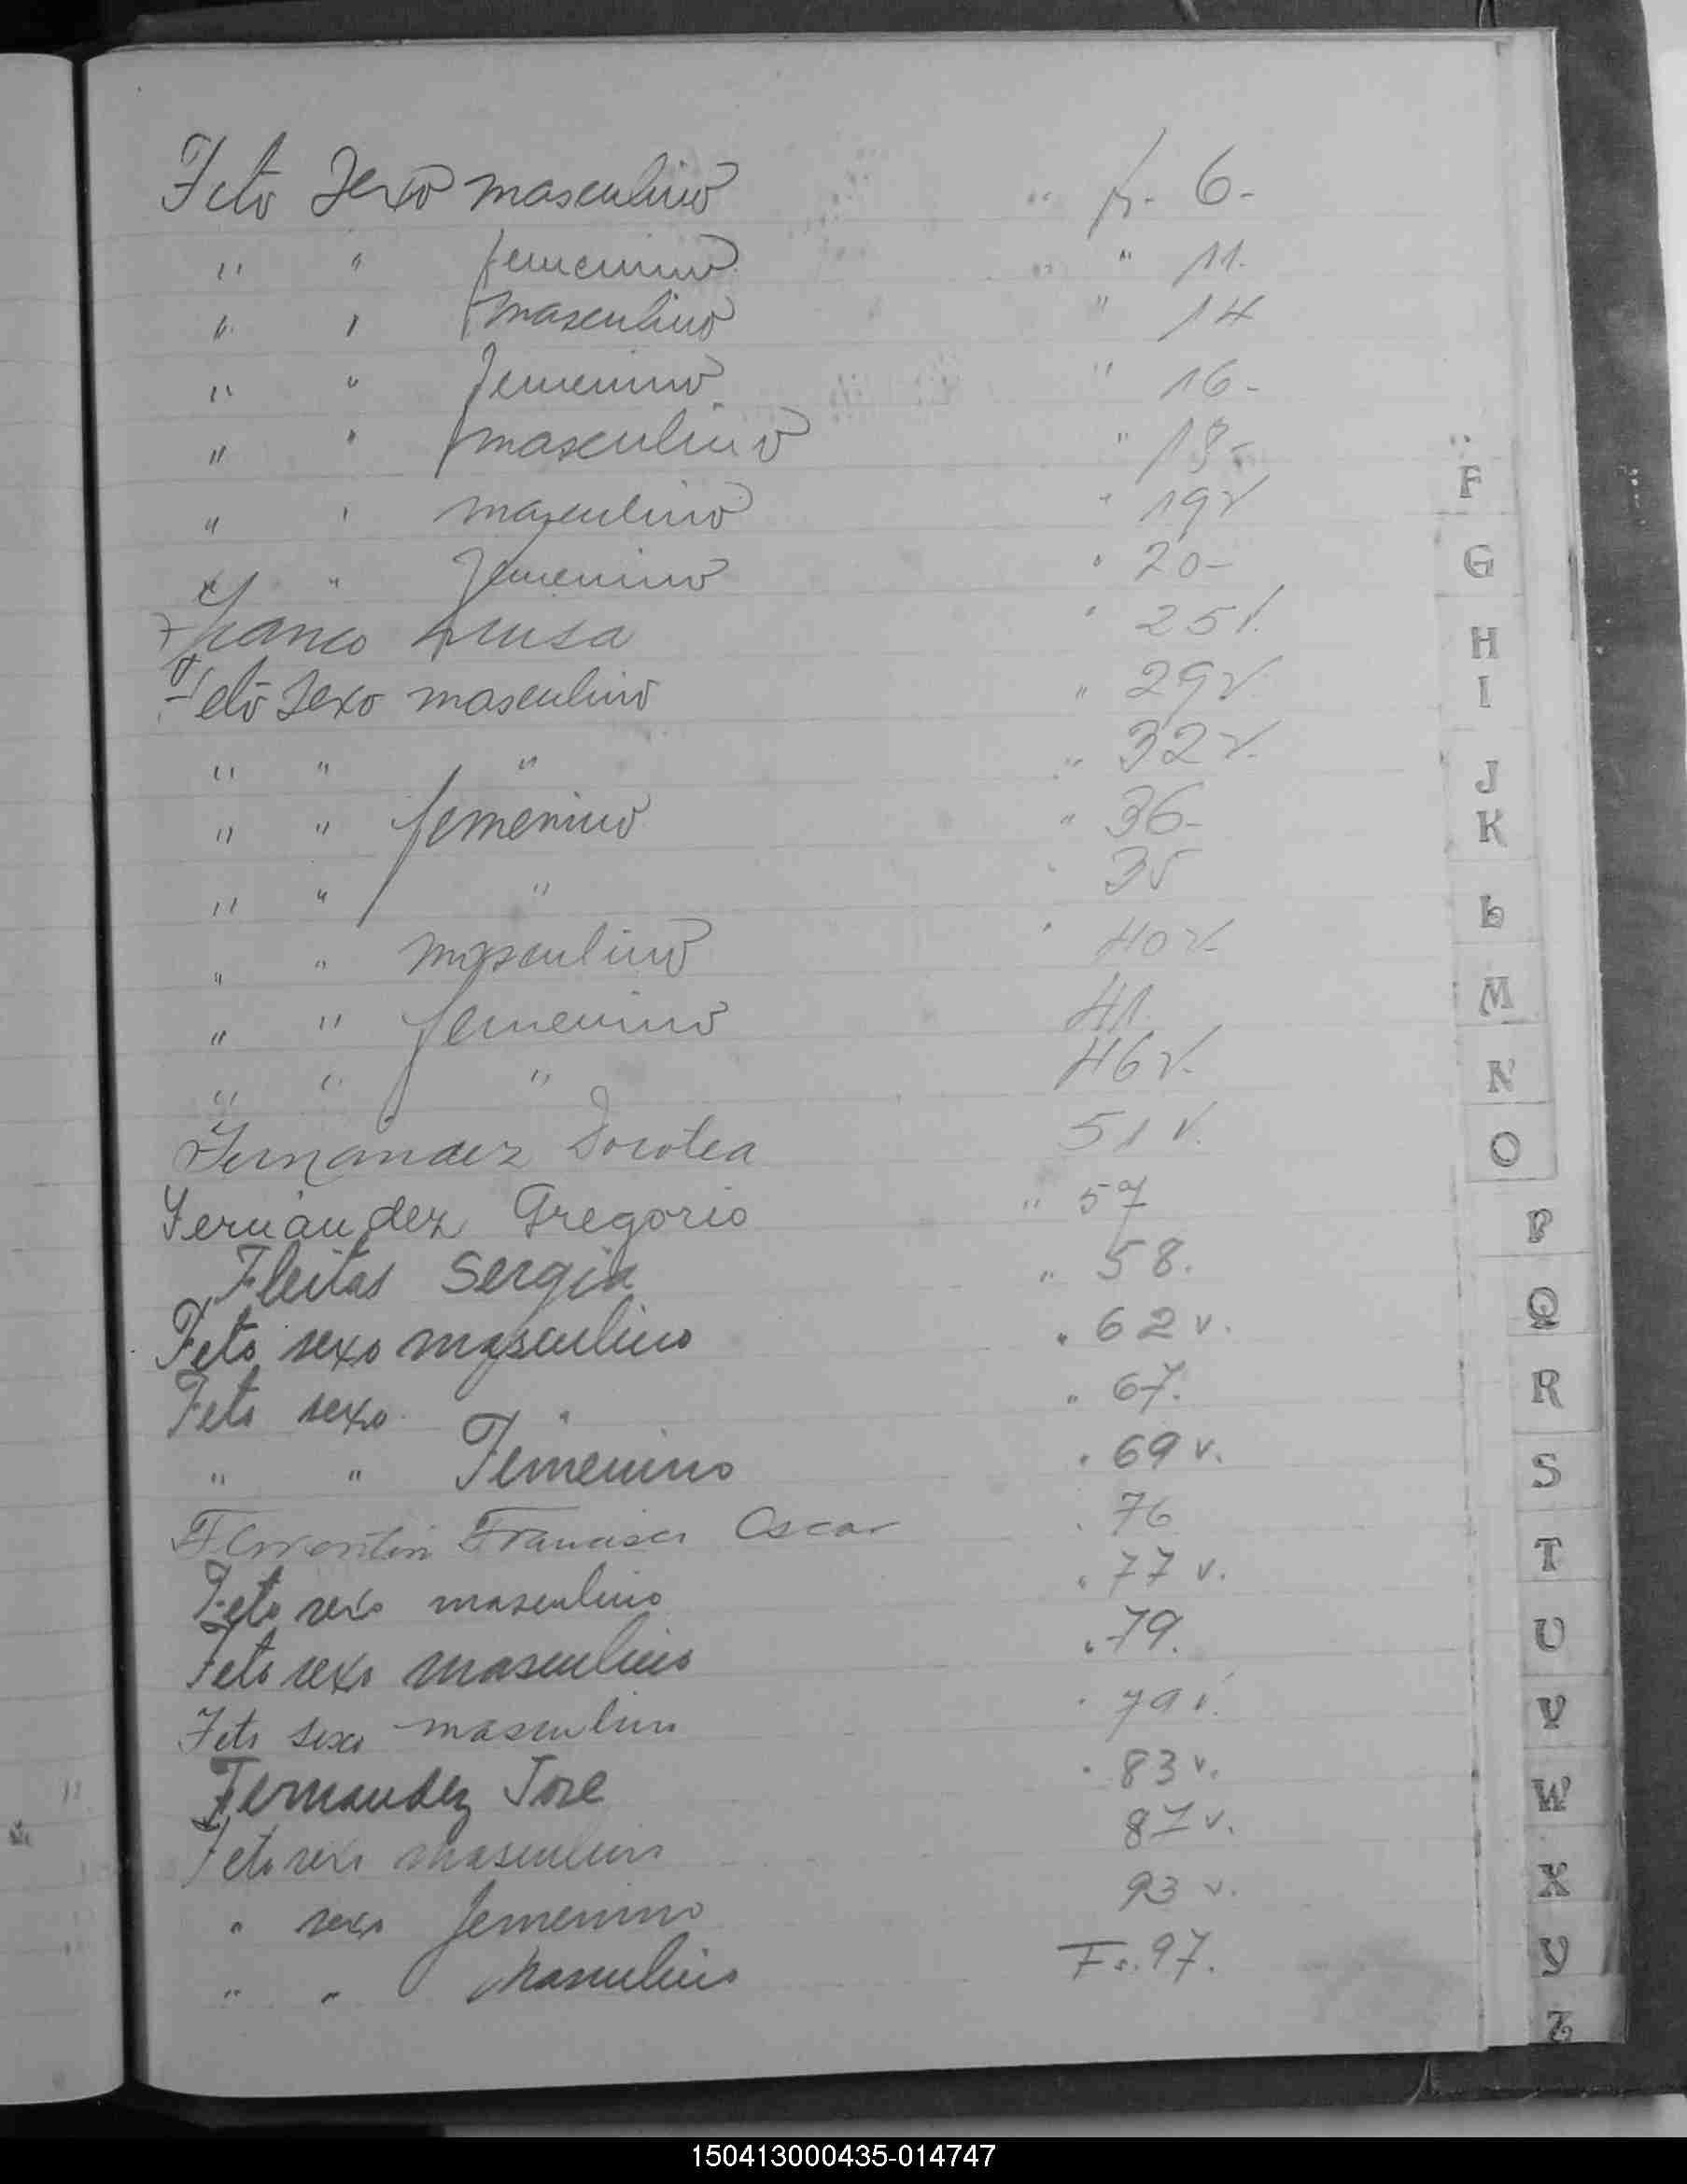 Feto Sexo masculino " f. 6-
" " femenino " " 11.
" " masculino " 14
" " femenino " 16-
" " masculino " 18-
" " masculino " 19v
" " femenino " 20-
Franco Luisa " 25v.
Feto Sexo masculino " 29v
" " " " 32v.
" " femenino " 36-
" " " " 35
" " masculino " 40v
" " femenino 41.
" " " 46v.
Fernandez Dorotea 51v.
Fernandez Gregorio " 57
Fleitas Sergia " 58.
Feto sexo masculino " 62v.
Feto sexo " " 67.
" " Femenino " 69v.
Florentin Francisco Oscar " 76
Feto sexo masculino " 77v.
Feto sexo masculino " 79.
Feto sexo masculino " 79v.
Fernandez Jose " 83v.
Feto sexo masculino 87v.
" sexo femenino 93v.
" " Masculino Fo. 97.
F
G
H
I
J
K
L
M
N
O
P
Q
R
S
T
U
V
W
X
Y
Z
150413000435-014747